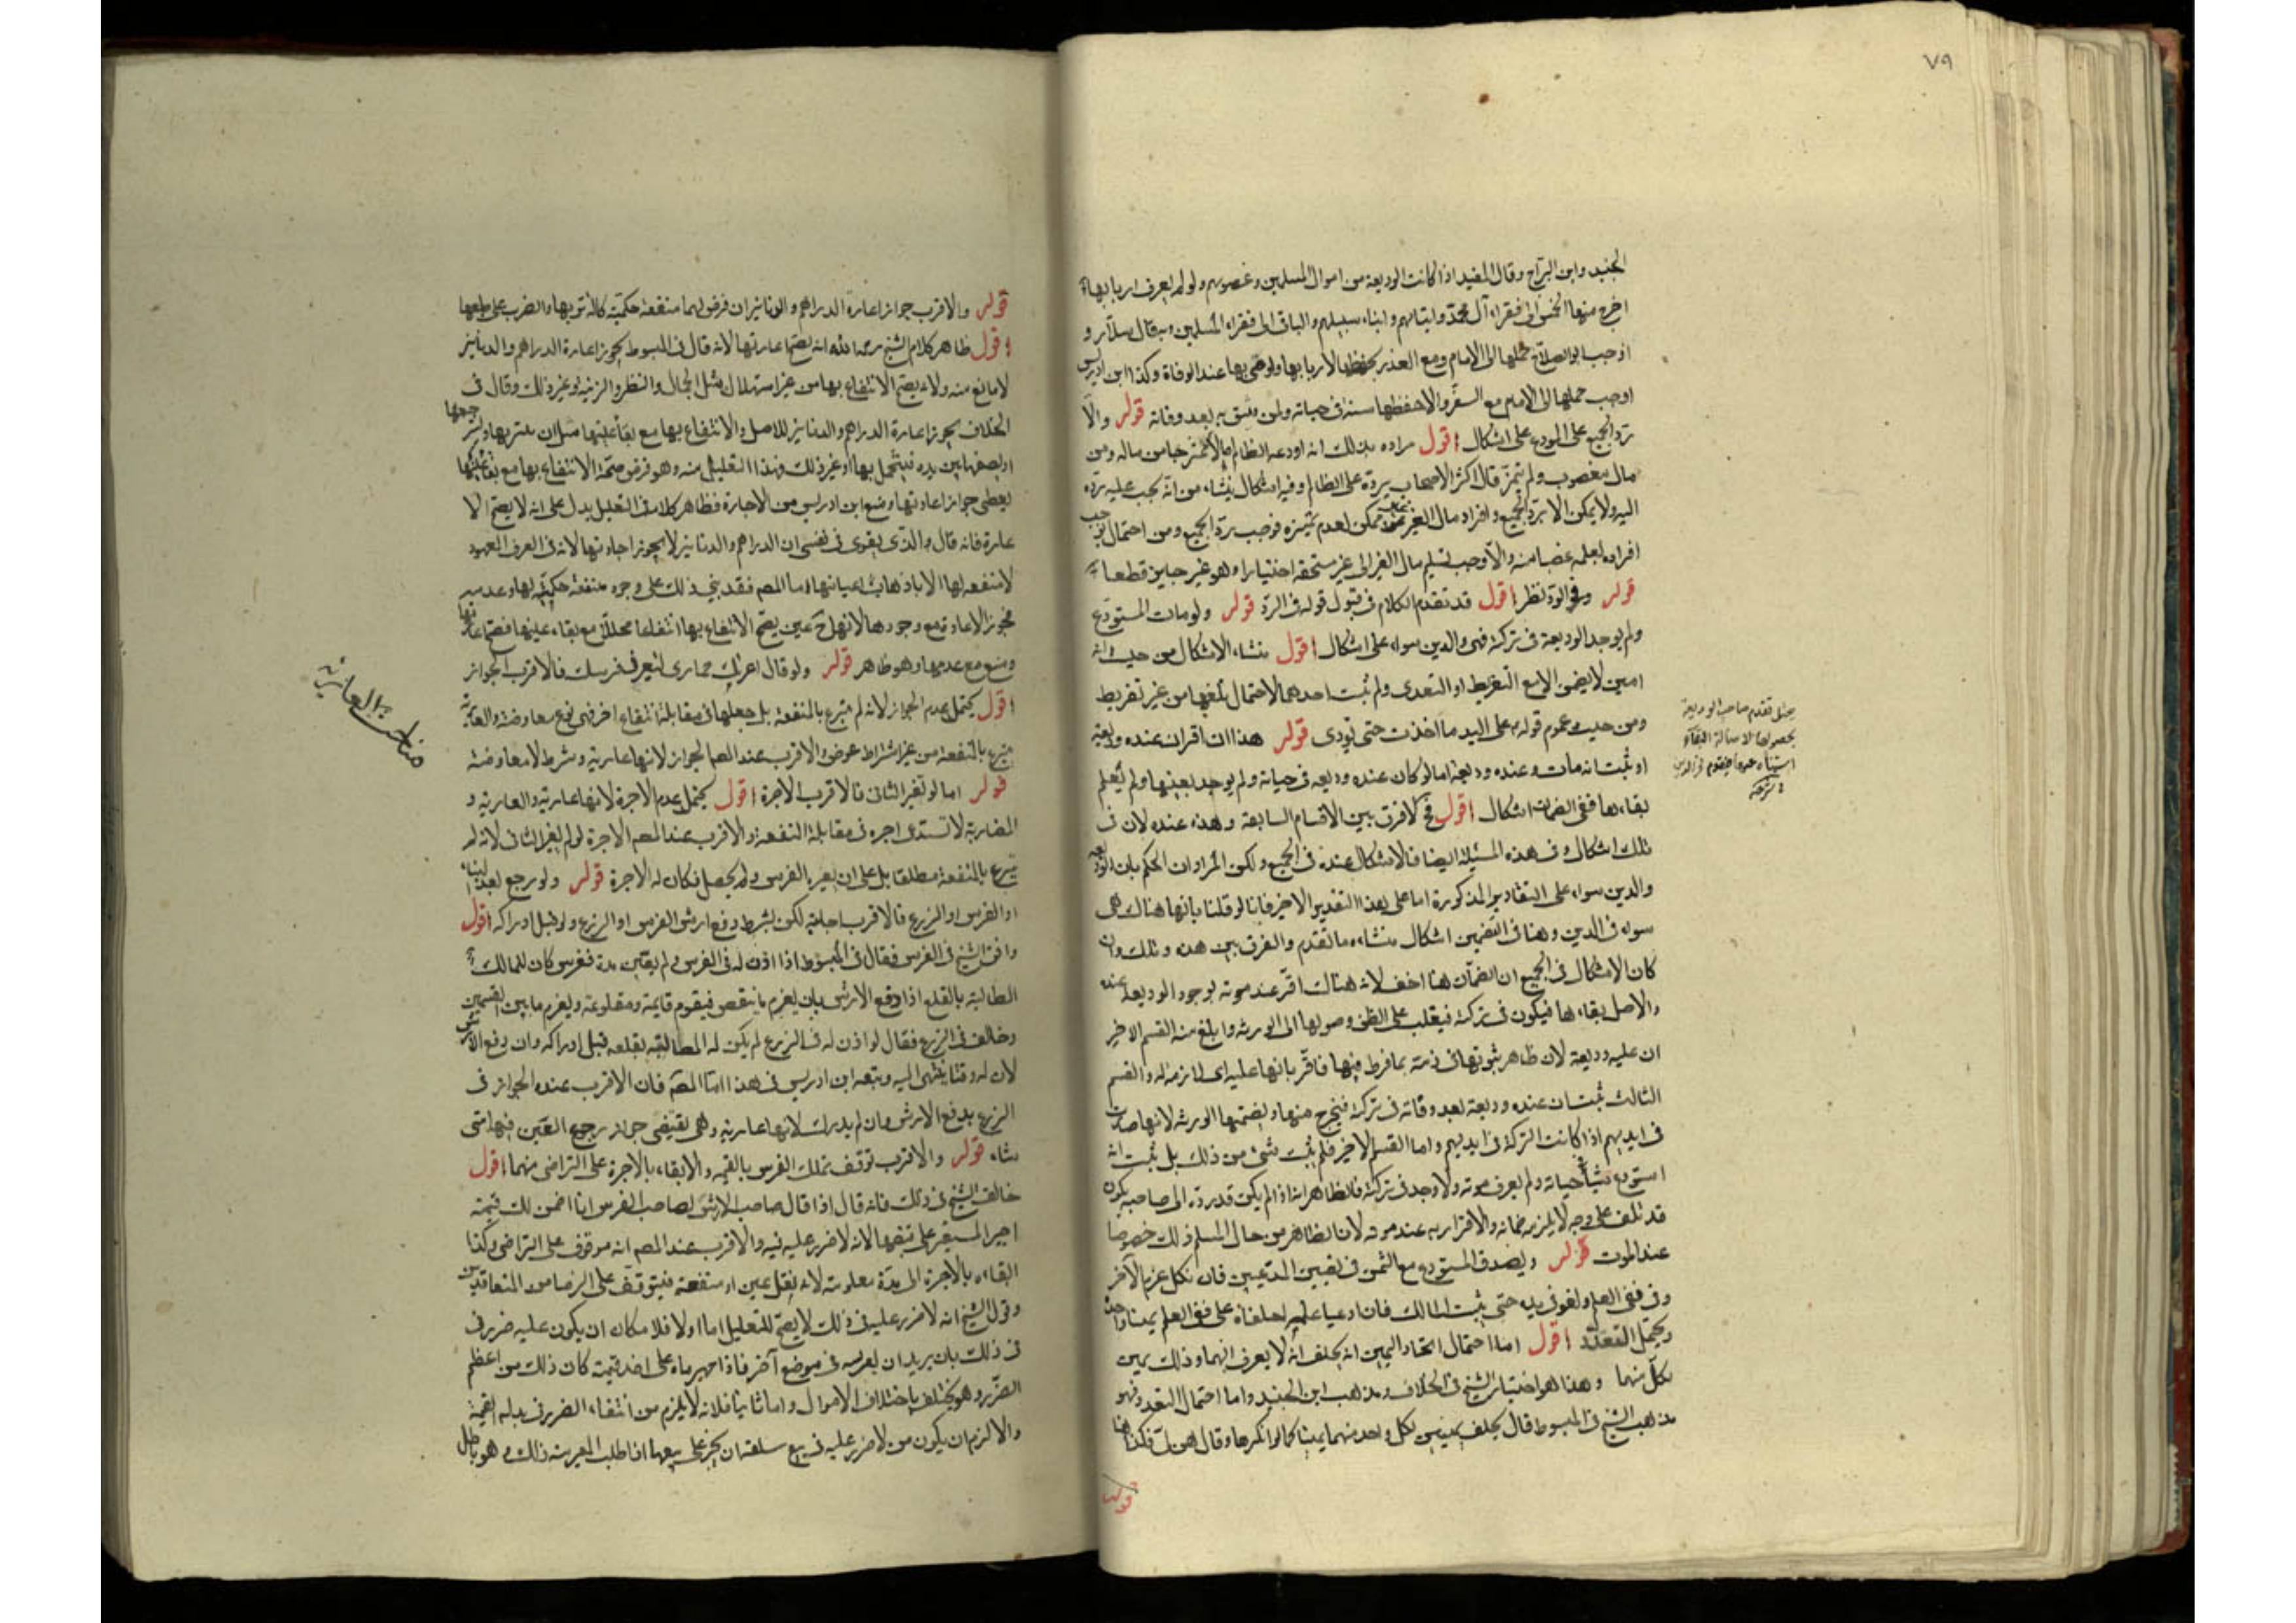 ٧٩
الجنيد وابن البراج وقال المفيد اذا كانت الوديعة من اموال المسلمين وغصوبهم ولو لم يعرف اربابها
اخرج منها الخمس الى فقراء آل محمد وايتامهم وابناء سبيلهم والباقي الى فقراء المسلمين وبه قال سلار و
اوجب ابو الصلاح حملها الى الامام ومع العذر يحفظها لاربابها ويوصي بها عند الوفاة وكذا ابن ادريس
اوجب حملها الى الامام مع السفر والا حفظها سنة في حياته ولمن يثق به بعد وفاته قوله والا
رد الجميع على المودع على اشكال اقول مراده بذلك انه اودعه الظالم من ماله ومن
مال مغصوب ولم يتميز قال اكثر الاصحاب يرده على الظالم وفيه اشكال ينشاء من انه يجب عليه رده
اليه ولا يمكن الا برد الجميع وافراد مال الغير ممكن لعدم تميزه فوجب رد الجميع ومن احتمال
افراده لعلمه غصبا منه والا وجب تسليم مال الغير الى غير مستحقه اختيارا وهو غير جايز قطعا
قوله وفي الرد نظر اقول قد تقدم الكلام في قبول قوله في الرد قوله ولو مات المستودع
ولم يوجد الوديعة في تركته فهي والدين سواء على اشكال اقول منشاء الاشكال من حيث انه
امين لا يضمن الا مع التفريط او التعدي ولم يثبت احدهما لاحتمال تلفها من غير تفريط
ومن حيث عموم قوله على اليد ما اخذت حتى تودي قوله هذا ان اقر ان عنده وديعة
او ثبت انه مات وعنده وديعة اما لو كان عنده وديعة في حياته ولم يوجد بعينها ولم يعلم
بقاءها ففي الضمان اشكال اقول لا فرق بين الاقسام السابقة وهذه عنده لان في
تلك اشكال وفي هذه المسئلة ايضا فالاشكال عنده في الجميع ولكن المراد ان الحكم بان الوديعة
والدين سواء على التقادير المذكورة اما على هذا التقدير الاخير فانا لو قلنا بانها هناك هي
سواء في الدين وهنا في التضمين اشكال منشاءه ما تقدم والفرق بين هذه وتلك وان
كان الاشكال في الجميع ان الضمان هنا اخف لانه هناك اقر عند موته بوجود الوديعة عنده
والاصل بقاءها فيكون في تركته فيغلب على الظن وصولها الى الورثة وابلغ منه القسم الاخير
ان عليه وديعة لان ظاهر ثبوتها في ذمته بما فرط فيها فاقر بانها عليه اي لازمة له والقسم
الثالث ثبت ان عنده وديعة بعد وفاته في تركته فيخرج منها ويضمنها الورثة لانها صارت
في ايديهم اذا كانت التركة في ايديهم واما القسم الاخير فلم يثبت شئ من ذلك بل ثبت انه
استودع شيئا في حياته ولم يعرف موته ولا وجد في تركته فالظاهر انه اذا لم يكن قد رده الى صاحبه يكون
قد تلف على وجه لا يلزمه ضمانه والاقرار به عند موته لان الظاهر من حال المسلم ذلك خصوصا
عند الموت قوله ويصدق المستودع مع الثمن في تعيين المدعيين فان نكل غرم للآخر
وفي نفي العلم ولغو في يده حتى يثبت المالك فان ادعيا علمه احلفاه على نفي العلم يمينا واحدة
ويحتمل التعدد اقول اما احتمال اتحاد اليمين انه يحلف انه لا يعرف انهما وذلك يمين
لكل منهما وهذا هو اختيار الشيخ في الخلاف ومذهب ابن الجنيد واما احتمال التعدد فهو
مذهب الشيخ في المبسوط قال يحلف يمينين لكل واحد منهما يمينا كما لو انكرهما وقال فكذا هنا
قوله
تقدم صاحب الوديعة
بحصولها لاصالة البقاء
قوله والاقرب جواز اعارة الدراهم والدنانير ان فرض لهما منفعة حكمية كالتزين بها والضرب على طبعها
اقول ظاهر كلام الشيخ رحمه الله انه يصح اعارتها لانه قال في المبسوط يجوز اعارة الدراهم والدنانير
لا مانع منه ولانه يصح الانتفاع بها من غير استهلاك مثل الجمال والنظر والزينة وغير ذلك وقال في
الخلاف يجوز اعارة الدراهم والدنانير للاصل والانتفاع بها مع بقاء عينها مثل ان
او يصفها بين يديه فيتجمل بها او غير ذلك وهذا التعليل منه وهو فرض صحة الانتفاع بها مع بقاء عينها
يعطي جواز اعارتها ومنع ابن ادريس من الاجارة فظاهر كلامه في التعليل يدل على انه لا يصح الا
عارة فانه قال والذي يقوى في نفسي ان الدراهم والدنانير لا يجوز اجارتها لانه في العرف المعهود
لا منفعة لها الا باذهاب اعيانها اما المصم فقد بني ذلك على وجود منفعة حكمية لها وعدمه
فجوز الاعارة مع وجودها لانها ح عين يصح الانتفاع بها انتفاعا محللا مع بقاء عينها فصح اعارتها
ومنع مع عدمها وهو ظاهر قوله ولو قال اعرتك حماري لتعيرني فرسك فالاقرب الجواز
اقول يحتمل عدم الجواز لانه لم يتبرع بالمنفعة بل جعلها في مقابلة انتفاع اخر فهي نوع معاوضة والعارية
تبرع بالمنفعة من غير اشتراط عوض والاقرب عند المصم الجواز لانها عارية وشرط لا معاوضة
قوله اما لو لم يعر الثاني فالاقرب الاجرة اقول يحتمل عدم الاجرة لانها عارية والعارية و
المضاربة لا تستدعي اجرة في مقابلة المنفعة والاقرب عند المصم الاجرة لو لم يعر الثاني لانه لم
يتبرع بالمنفعة مطلقا بل على ان يعيره الفرس ولم يحصل فكان له الاجرة قوله ولو رجع بعد البناء
او الغرس او الزرع فالاقرب اجابته لكن بشرط دفع ارش الغرس او الزرع ولو قبل ادراكه اقول
وافق الشيخ في الغرس فقال في المبسوط اذا اذن له في الغرس ولم يعين مدة فغرس كان للمالك
المطالبة بالقلع اذا دفع الارش بان يغرم ما ينقص فيقوم قايمة ومقلوعة ويغرم ما بين القسمين
وخالف في الزرع فقال لو اذن له في الزرع لم يكن له المطالبة بقلعه قبل ادراكه وان دفع الارش
لان له وقتا ينتهي اليه وتبعه ابن ادريس في هذا اما المصم فان الاقرب عنده الجواز في
الزرع بدفع الارش وان لم يدرك لانها عارية وهي تقتضي جواز رجوع العين فيها متى
شاء قوله والاقرب توقف تملك الغرس بالقيمة والابقاء بالاجرة على التراضي منهما اقول
خالف الشيخ في ذلك فانه قال اذا قال صاحب الارض لصاحب الغرس انا اضمن لك قيمته
اجبر المستعير على قبضها لانه لا ضرر عليه فيه والاقرب عند المصم انه موقوف على التراضي وكذا
ابقاءه بالاجرة الى مدة معلومة لانه نقل عين او منفعة فيتوقف على الرضا من المتعاقدين
وقول الشيخ انه لا ضرر عليه في ذلك لا يصح للتعليل اما اولا فلامكان ان يكون عليه ضرر في
في ذلك بان يريد ان يغرسه في موضع آخر فاذا اجبرناه على اخذ قيمته كان ذلك من اعظم
الضرر وهو يختلف باختلاف الاموال واما ثانيا فلانه لا يلزم من انتفاء الضرر في بدله القيمة
والا لزم ان يكون من لا ضرر عليه في بيع سلعته ان يجبر على بيعها اذا طلب الغير منه ذلك وهو باطل